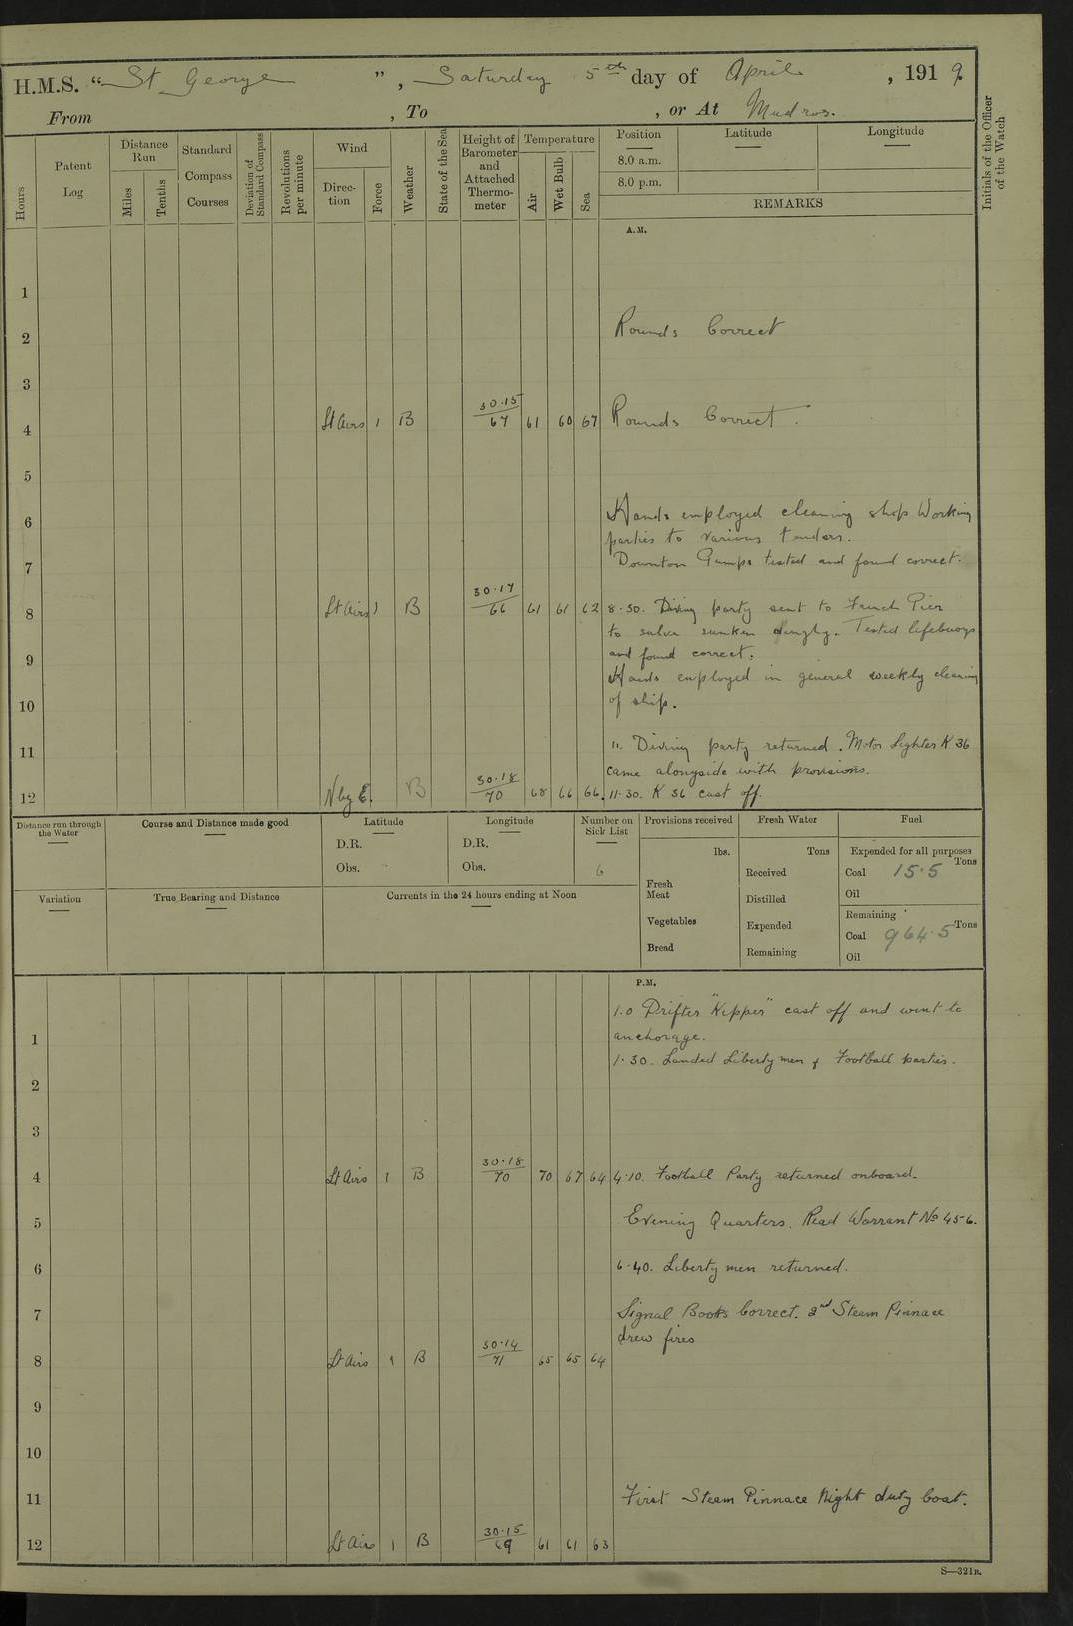 H.M.S. “ St George ” , Saturday 5th day of April , 1919
From , To , or At Mudros.
Hours
Patent Log
Distance Run
Miles
Tenths
Standard Compass Courses
Deviation of Standard Compass
Revolutions per minute
Wind
Direc-tion
Force
Weather
State of the Sea
Height of Barometer and Attached Thermo-meter
Temperature
Air
Wet Bulb
Sea
Position
8.0 a.m.
8.0 p.m.
Latitude
Longitude
REMARKS
Initials of the Officer of the Watch
A.M.
1
2 Rounds Correct
3
4 Lt Airs 1 B 30.15/67 61 60 67 Rounds Correct.
5
6 Hands employed cleaning ship Working
parties to various tenders.
7 Downton Pumps tested and found correct.
8 Lt Airs 1 B 30.17/66 61 61 62 8.30. Diving party sent to French Pier
to salve sunken dinghy. Tested lifebuoys
9 and found correct.
Hands employed in general weekly cleaning
10 of ship.
11 11. Diving party returned. Motor Lighter K 36
came alongside with provisions.
12 N by E. B 30.18/70 68 66 66. 11.30. K 36 cast off.
Distance run through the Water
Course and Distance made good
Latitude
D.R.
Obs.
Longitude
D.R.
Obs.
Number on Sick List
6
Provisions received
lbs.
Fresh Meat
Vegetables
Bread
Fresh Water
Tons
Received
Distilled
Expended
Remaining
Fuel
Expended for all purposes
Coal 15.5 Tons
Oil
Remaining
Coal 964.5 Tons
Oil
Variation
True Bearing and Distance
Currents in the 24 hours ending at Noon
P.M.
1.0 Drifter "Kipper" cast off and went to
1 anchorage.
1.30. Landed Liberty men & Football parties.
2
3
4 Lt Airs 1 B 30.18/70 70 67 64 4.10. Football Party returned onboard.
5 Evening Quarters. Read Warrant No 456.
6 6.40. Liberty men returned.
7 Signal Books Correct. 2nd Steam Pinnace
drew fires
8 Lt Airs 1 B 30.14/71 65 65 64
9
10
11 First Steam Pinnace Night duty boat.
12 Lt Airs 1 B 30.15/69 61 61 63
S—321B.